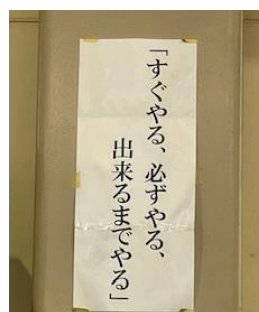 「すぐやる、必ずやる、
出来るまでやる」